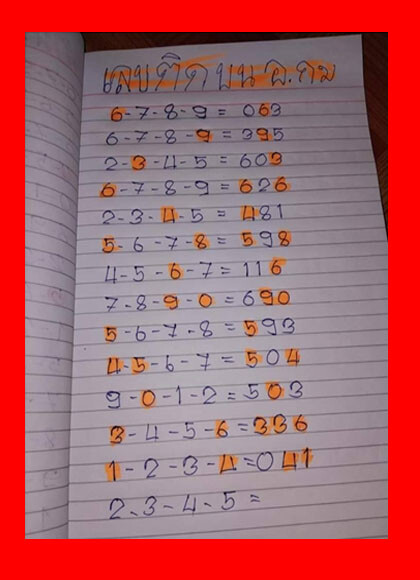 เลขติดบน อ.กบ
6-7-8-9 = 063
6-7-8-9 = 395
2-3-4-5 = 603
6-7-8-9 = 626
2-3-4-5 = 481
5-6-7-8 = 598
4-5-6-7 = 116
7-8-9-0 = 690
5-6-7-8 = 593
4-5-6-7 = 504
9-0-1-2 = 503
3-4-5-6 = 336
1-2-3-4 = 041
2-3-4-5 =